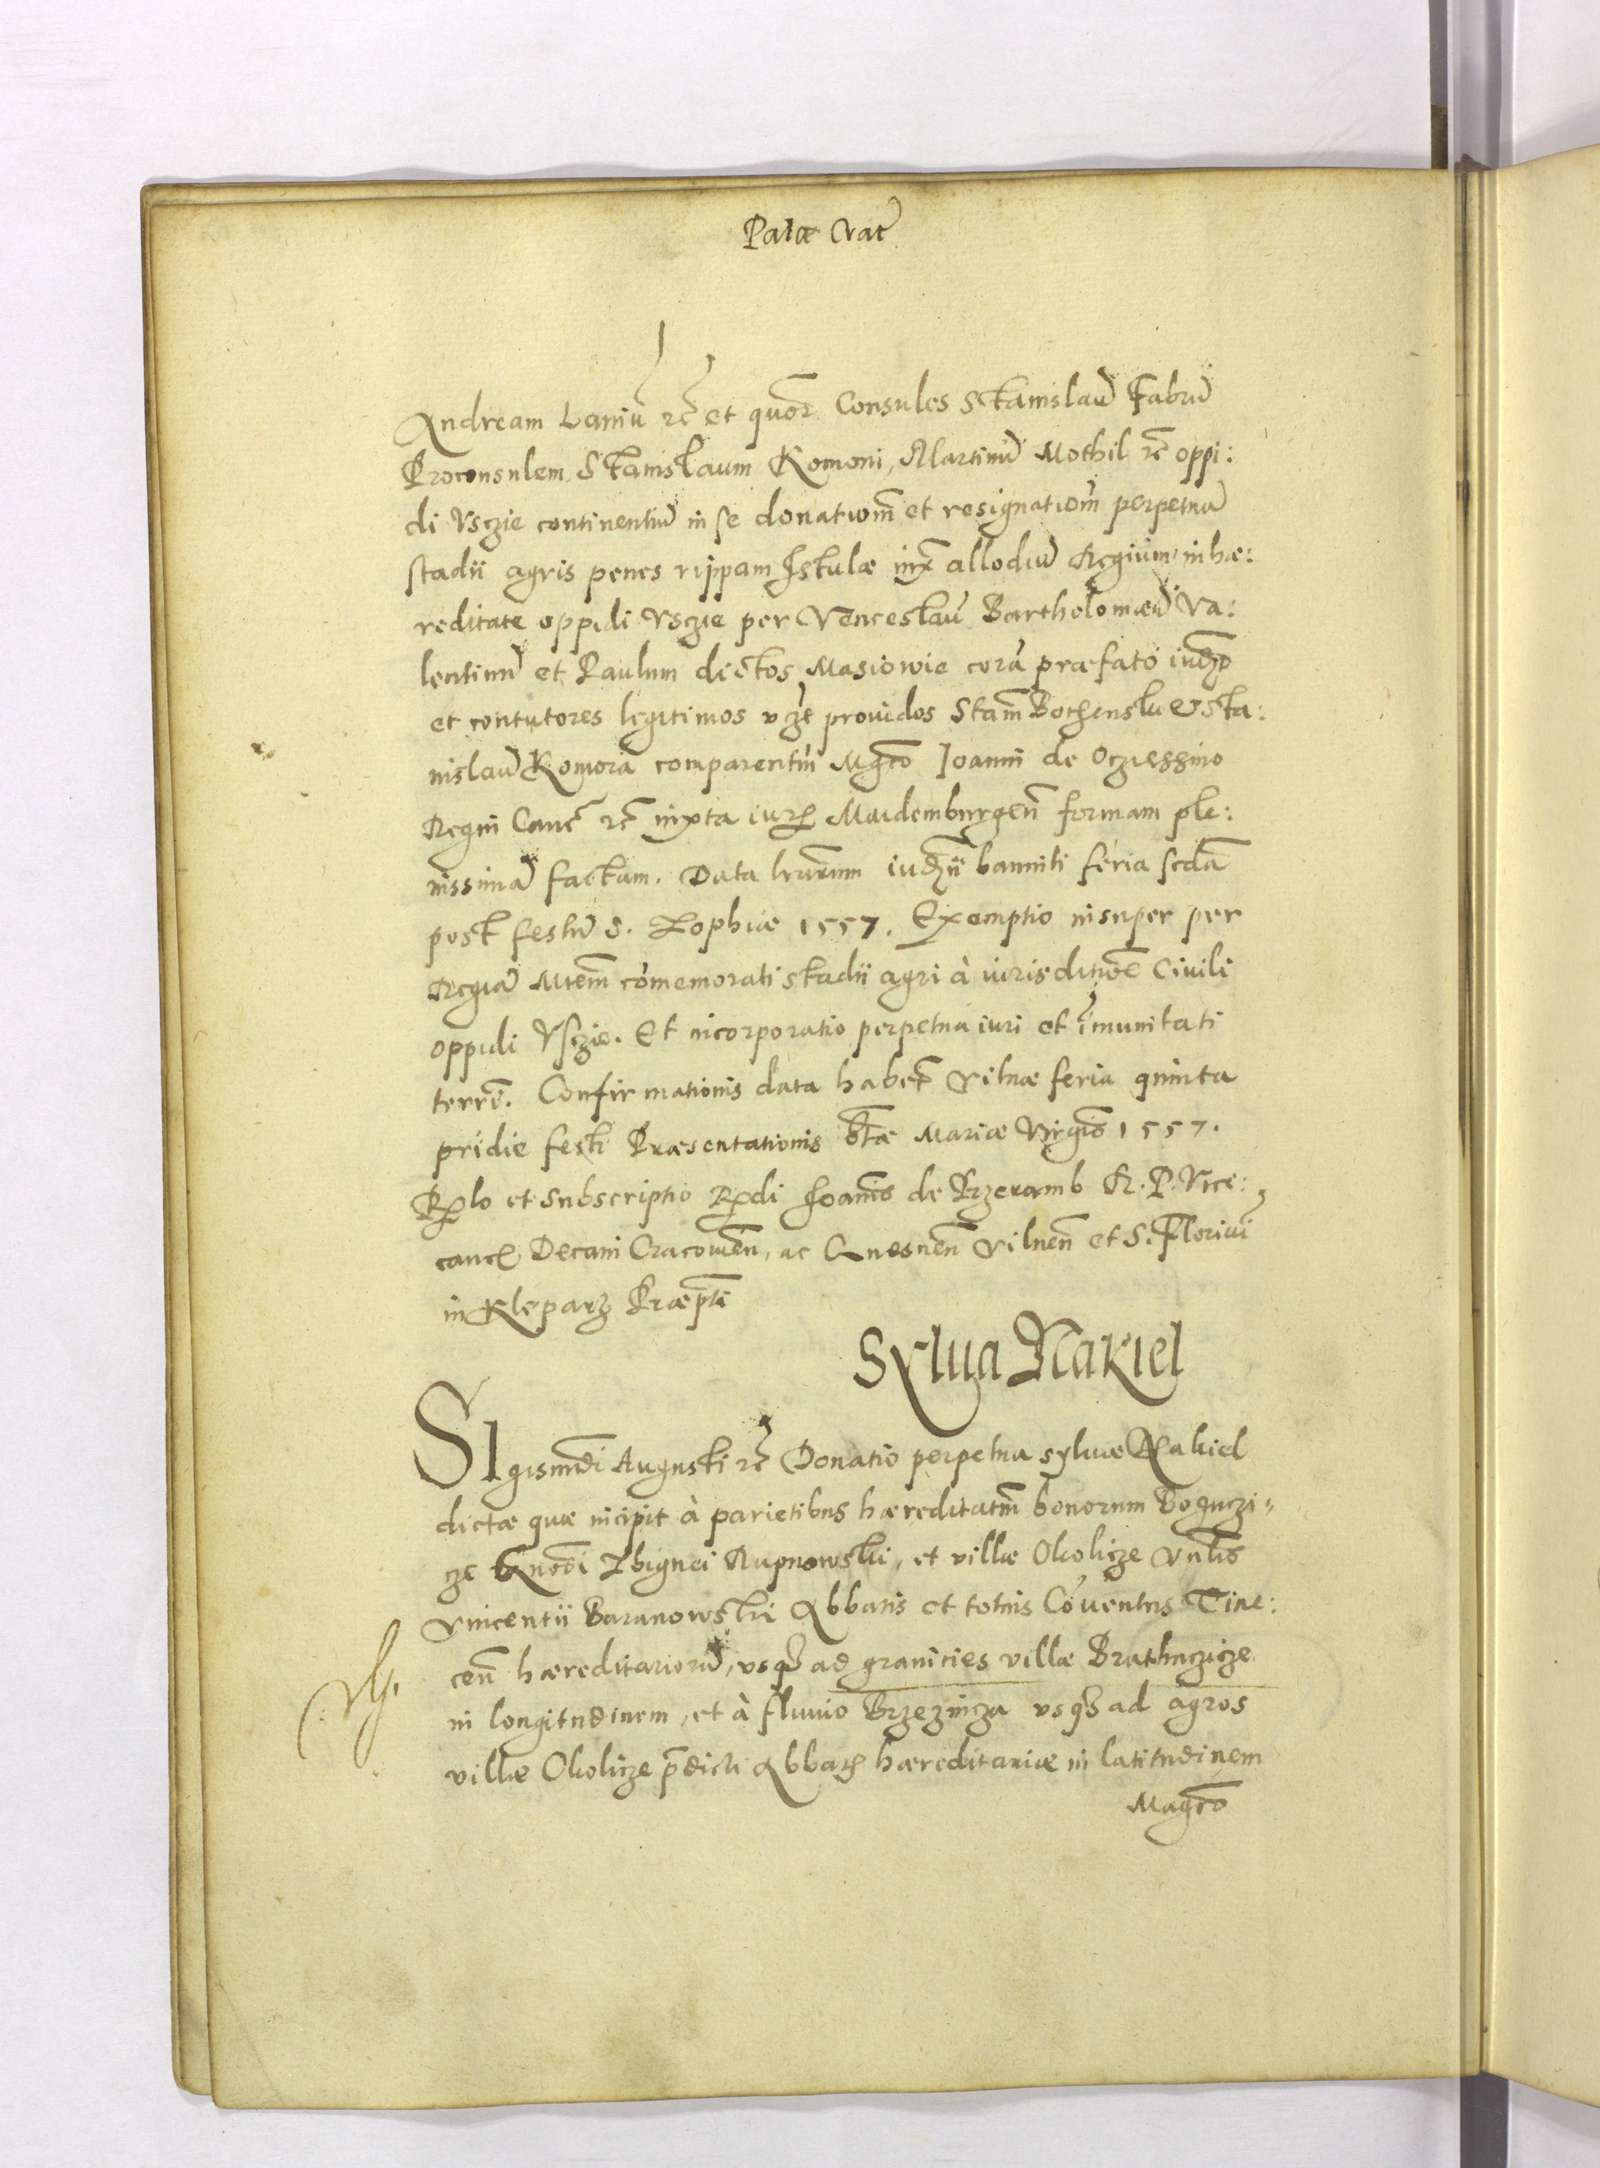 Palae Crac
Andream Laniū rc̄ et quor̄ Consules Stanislaū Fabrū
Proconsulem Stanislaum Komoni, Martinū Mothil rc̄ oppi:
di Vsczie continentiū in se donatiom̄ et resignatiom̄ perpetuā
stadii agris penes rippam Istulae iux̄ allodiū Regium in hae:
reditate oppidi Vsczie per Venceslaū Bartholomaeū Va:
lentinū et Paulum dictos Masiowie corā praefato iudꝫo
et contutores legitimos vzt prouidos Stam̄ Bochensku et Sta:
nislaū Komorā comparentiū Mgco Ioanni de Oczieszino
Regni Canc̄ rc̄ iuxta iuris Maidemburgen̄ formam ple:
nissimā factam. Data lrarum iudicii banniti feria scdā
post festū S. Zophiae 1557. Exemptio insuper per
Regiā Mtem̄ com̄emorati stadii agri à iurisditiōe Ciuili
oppidi Vsczie. Et incorporatio perpetua iuri et im̄unitati
terrē. Confirmationis data habet Vilnae feria quinta
pridie festi Praesentationis btae Mariae Virgīs 1557.
Rlo et Subscriptio Rdi Ioannis de Przeramb R. P. Vice:
canc. Decani Cracouien̄, ac Gnesnen̄ Vilnen̄ et S. Floriani
in Kleparz Praeptī
Sylua Nakiel
Sigismūdi Augusti rc̄ Donatio perpetua syluae Nakiel
dictae quae incipit à parietibus haereditatum̄ bonorum Boguczi=
cze Gnosi Zbignei Rupnowski, et villae Okolicze Vnlis
Vincentii Baranowski Abbatis et totius Cōuentus Tine:
cen̄ haereditariorū, vsqꝫ ad granicies villae Brathuczicze
in longitudinem, et à fluuio Brzezincza vsqꝫ ad agros
villae Okolicze p̄dicti Abbatis haereditariae in latitudinem
Magco